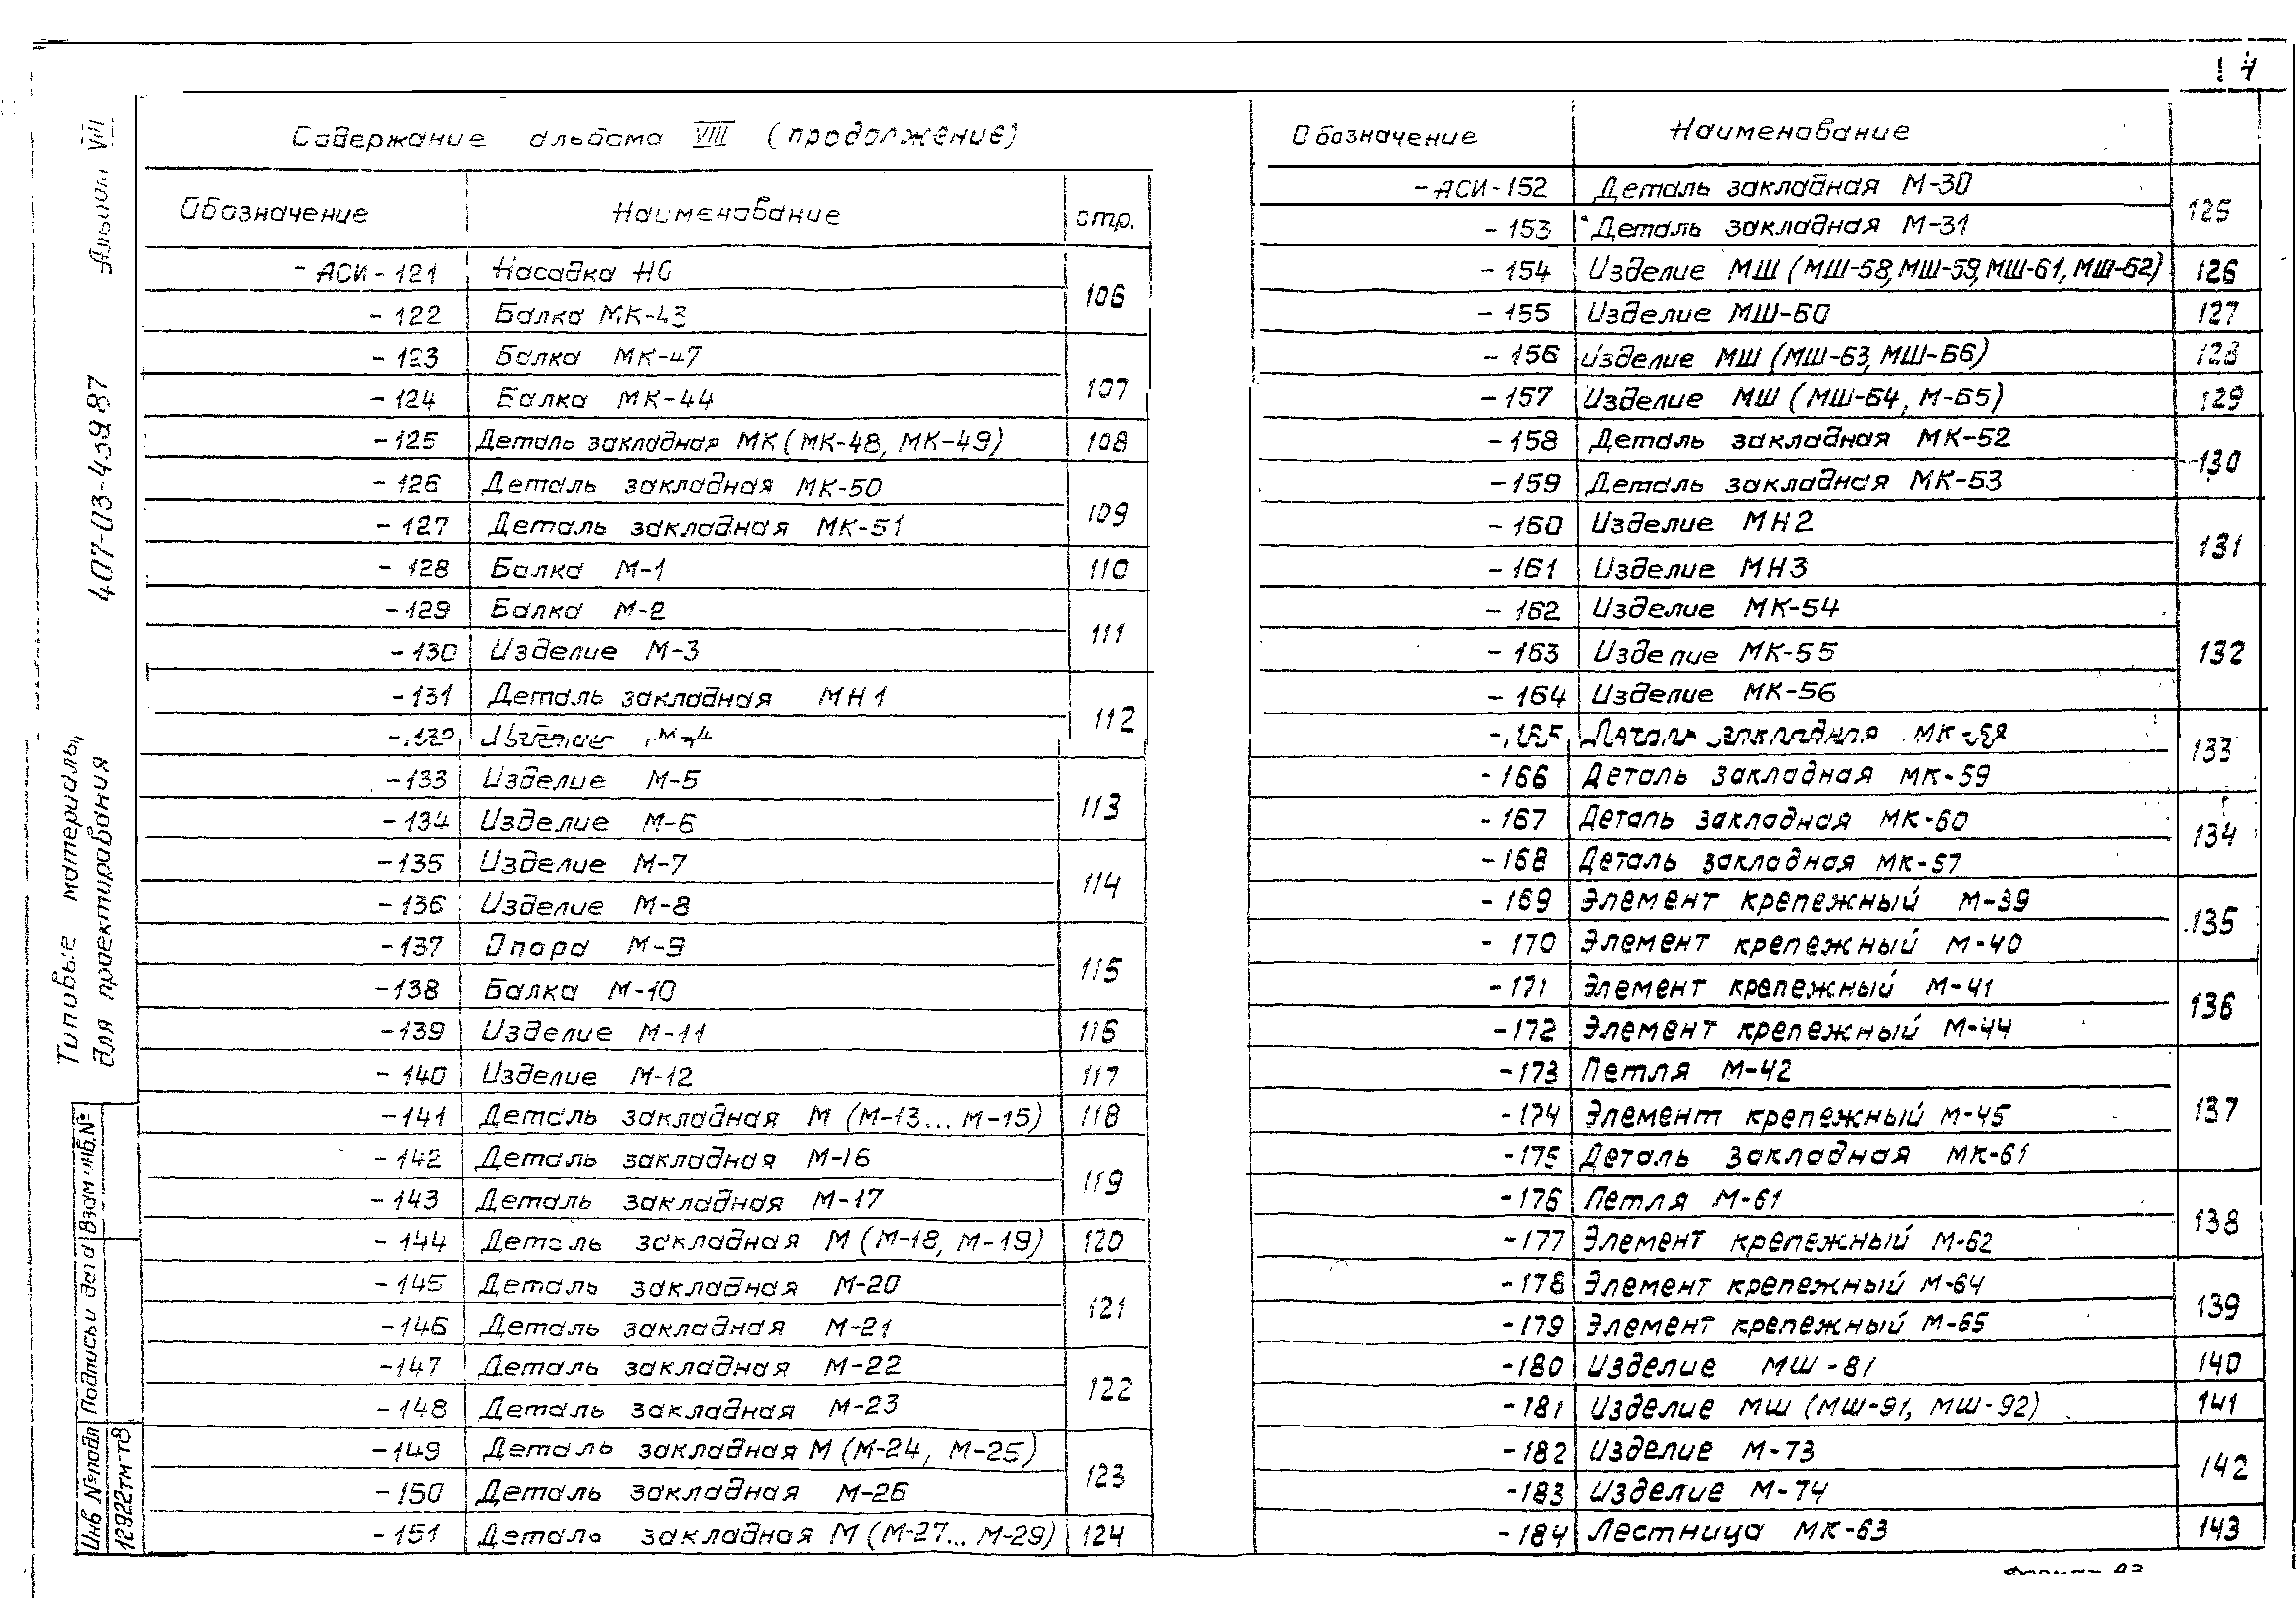 4
Содержание альбома VIII (продолжение)
Обозначение Наименование стр.
- АСИ - 121 Насадка НС 106
- 122 Балка МК-43
- 123 Балка МК-47 107
- 124 Балка МК-44
- 125 Деталь закладная МК (МК-48, МК-49) 108
- 126 Деталь закладная МК-50 109
- 127 Деталь закладная МК-51
- 128 Балка М-1 110
- 129 Балка М-2 111
- 130 Изделие М-3
- 131 Деталь закладная МН1 112
- 132 Изделие М-4
- 133 Изделие М-5 113
- 134 Изделие М-6
- 135 Изделие М-7 114
- 136 Изделие М-8
- 137 Опора М-9 115
- 138 Балка М-10
- 139 Изделие М-11 116
- 140 Изделие М-12 117
- 141 Деталь закладная М (М-13... М-15) 118
- 142 Деталь закладная М-16 119
- 143 Деталь закладная М-17
- 144 Деталь закладная М (М-18, М-19) 120
- 145 Деталь закладная М-20 121
- 146 Деталь закладная М-21
- 147 Деталь закладная М-22 122
- 148 Деталь закладная М-23
- 149 Деталь закладная М (М-24, М-25) 123
- 150 Деталь закладная М-26
- 151 Деталь закладная М (М-27... М-29) 124
Обозначение Наименование
- АСИ - 152 Деталь закладная М-30 125
- 153 Деталь закладная М-31
- 154 Изделие МШ (МШ-58, МШ-59, МШ-61, МШ-62) 126
- 155 Изделие МШ-60 127
- 156 Изделие МШ (МШ-63, МШ-66) 128
- 157 Изделие МШ (МШ-64, М-65) 129
- 158 Деталь закладная МК-52 130
- 159 Деталь закладная МК-53
- 160 Изделие МН2 131
- 161 Изделие МН3
- 162 Изделие МК-54 132
- 163 Изделие МК-55
- 164 Изделие МК-56
- 165 Деталь закладная МК-58 133
- 166 Деталь закладная МК-59
- 167 Деталь закладная МК-60 134
- 168 Деталь закладная МК-57
- 169 Элемент крепежный М-39 135
- 170 Элемент крепежный М-40
- 171 Элемент крепежный М-41 136
- 172 Элемент крепежный М-44
- 173 Петля М-42 137
- 174 Элемент крепежный М-45
- 175 Деталь закладная МК-61
- 176 Петля М-61 138
- 177 Элемент крепежный М-62
- 178 Элемент крепежный М-64 139
- 179 Элемент крепежный М-65
- 180 Изделие МШ-81 140
- 181 Изделие МШ (МШ-91, МШ-92) 141
- 182 Изделие М-73 142
- 183 Изделие М-74
- 184 Лестница МК-63 143
Типовые материалы
для проектирования
407-03-439.87 Альбом VIII
Инв № подл Подпись и дата Взам инв. №
12922тм-т8
Формат А3